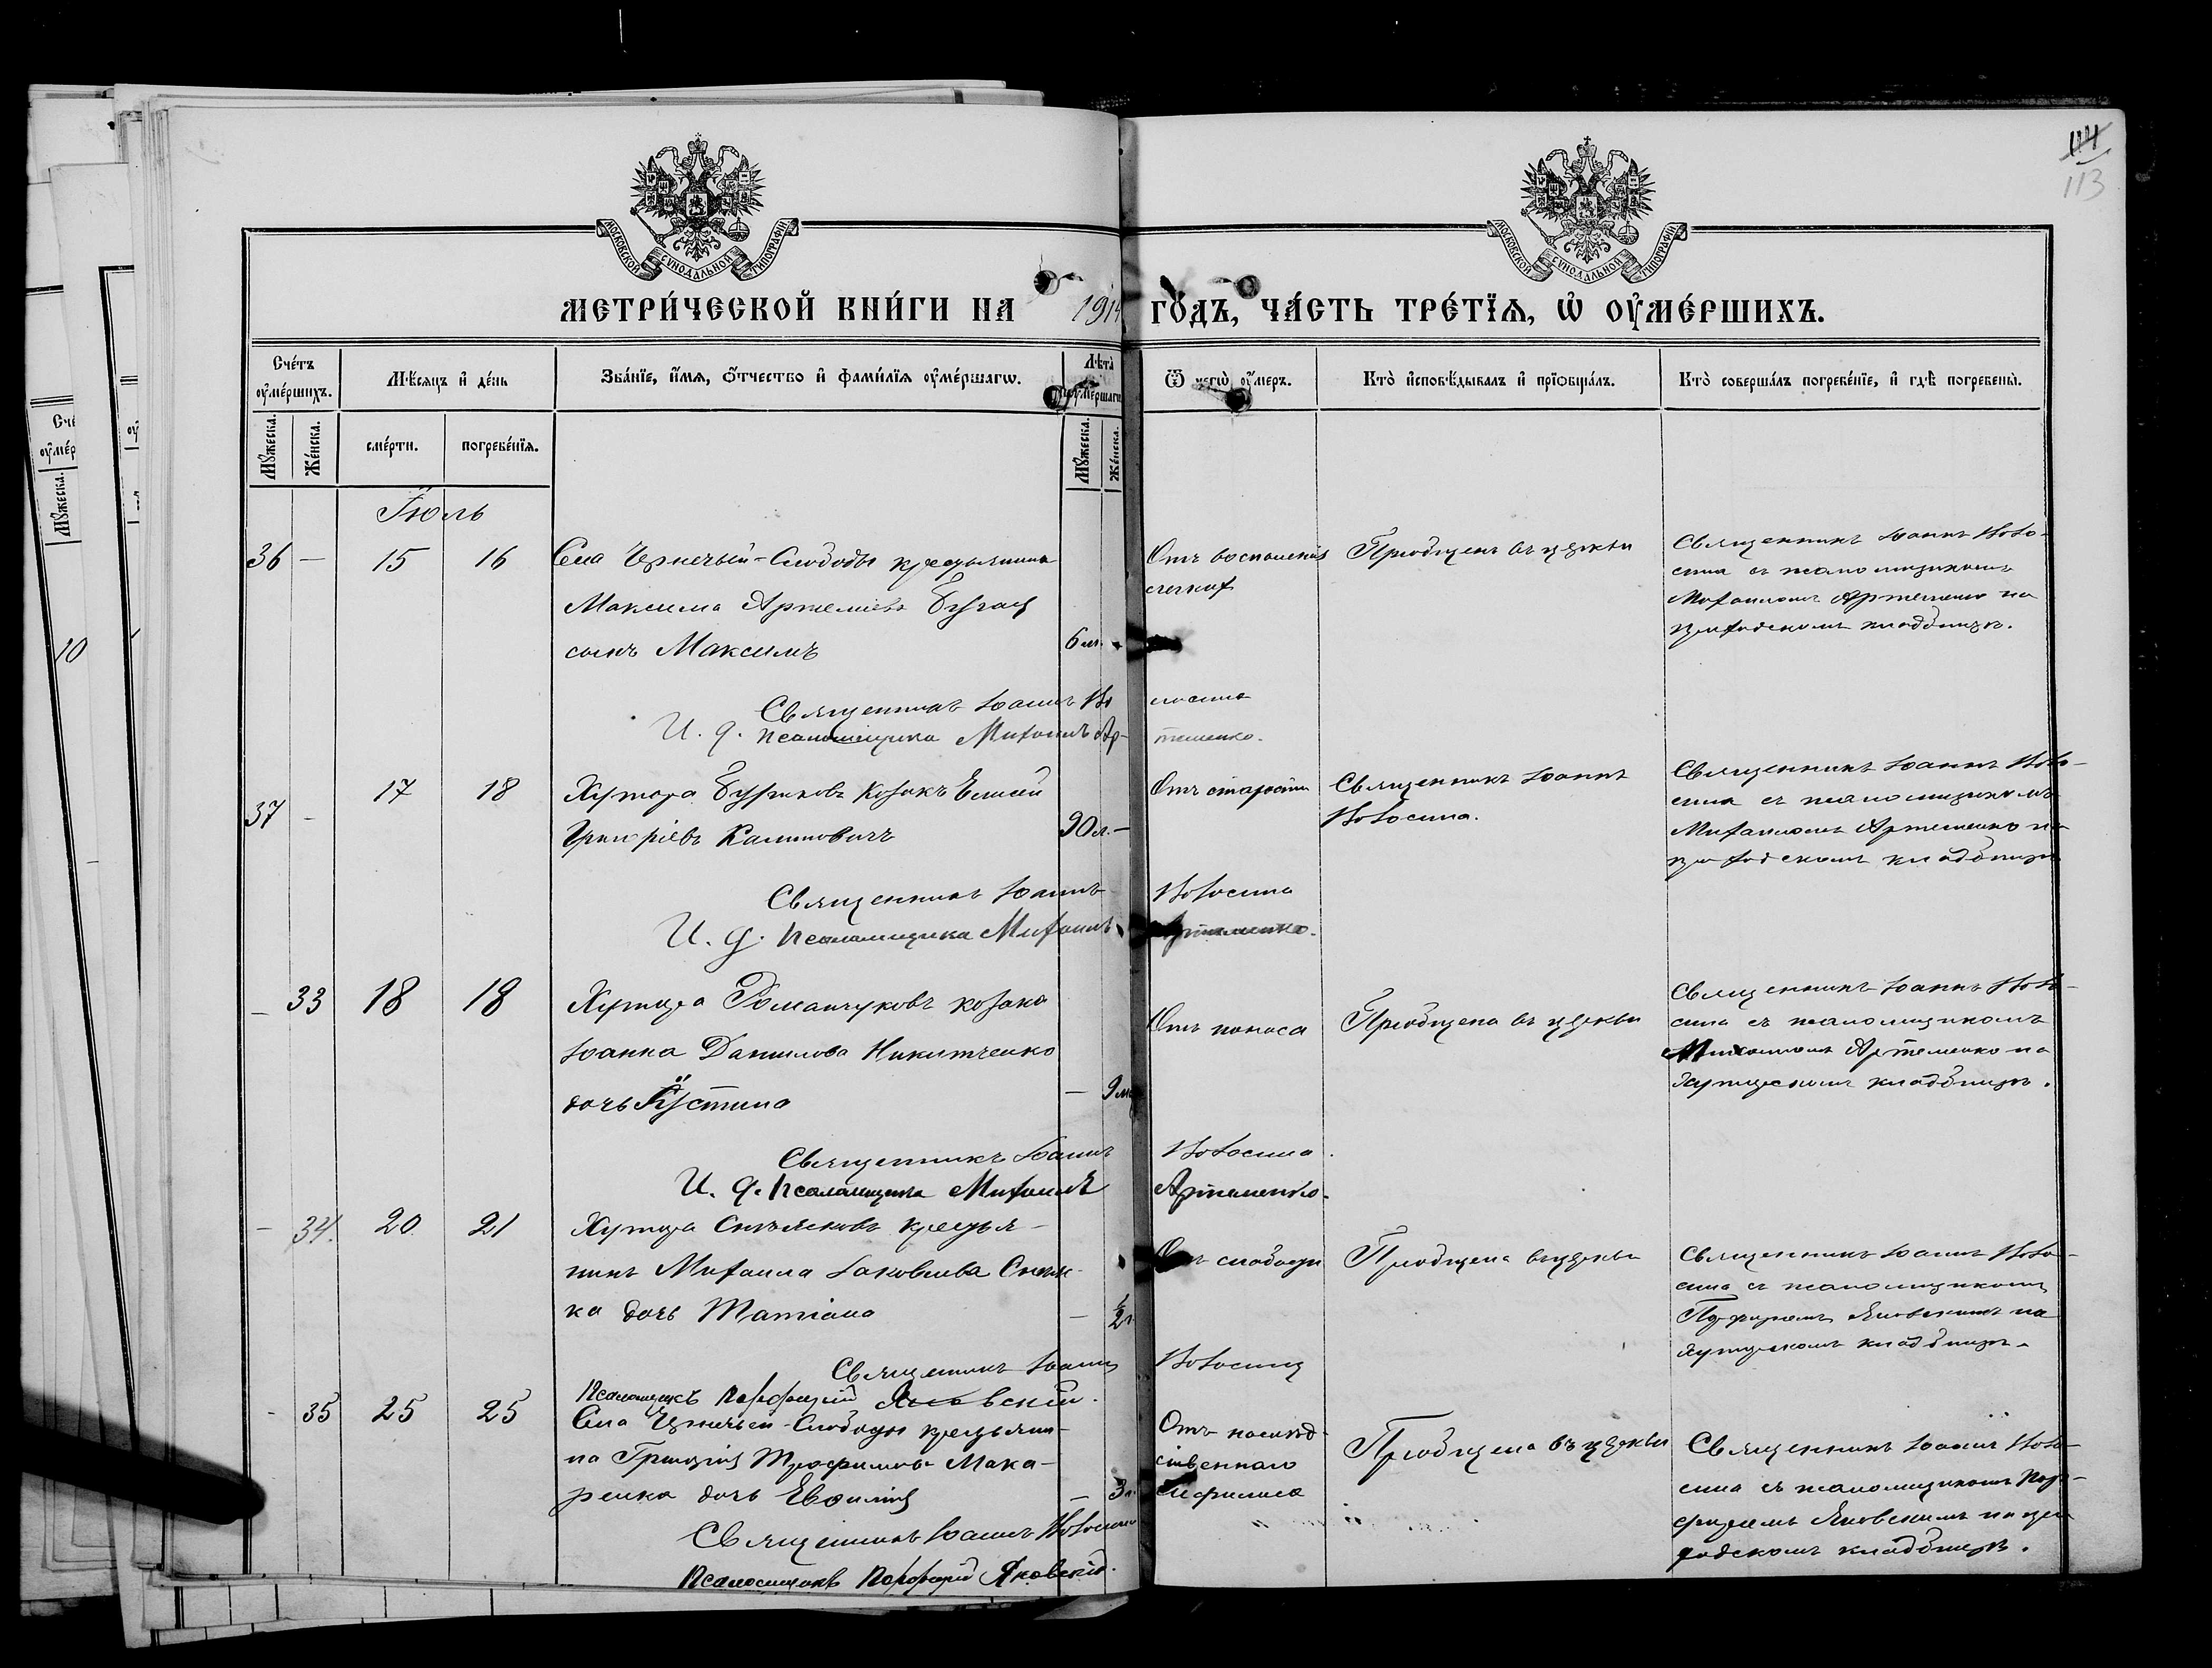 114
113
МОСКОВСКОЙ СУНОДАЛЬНОЙ ТИПОГРАФІИ
МОСКОВСКОЙ СУНОДАЛЬНОЙ ТИПОГРАФІИ
МЕТРИ́ЧЕСКОЙ КНИ́ГИ НА 1914 ГО́ДЪ, ЧА́СТЬ ТРЕ́ТЇѦ, Ѡ҆ ОУ҆МЕ́РШИХЪ.
Сче́тъ оу҆ме́ршихъ.
Мѣ́сѧцъ и҆ де́нь
Зва́нїе, и҆́мѧ, ѻ҆́тчество и҆ фами́лїѧ оу҆ме́ршагѡ.
Лѣ́та оу҆ме́ршагѡ
Ѿ чегѡ̀ оу҆́меръ.
Кто̀ и҆сповѣ́дывалъ и҆ прїѡбща́лъ.
Кто̀ соверша́лъ погребе́нїе, и҆ гдѣ̀ погребены̀.
Мꙋ́жеска. Же́нска. сме́рти. погребе́нїѧ. Мꙋ́жеска. Же́нска.
Іюль
36 — 15 16 Села Чернечьей-Слободы крестьянина
Максима Артеміева Бугая
сынъ Максимъ 6 м. -
Отъ воспаленія
легких
Приобщенъ въ церкви
Священникъ Іоаннъ Воло-
сина съ псаломщикомъ
Михаиломъ Артеменко на
приходскомъ кладбищѣ.
Священникъ Іоаннъ Во лосина
И. д. псаломщика Михаилъ Ар- теменко.
37 - 17 18 Хутора козакъ Елисей
Григоріевъ Калиновичъ 90 л. —
Отъ старости
Священникъ Іоаннъ
Волосина.
Священникъ Іоаннъ Воло-
сина съ псаломщикомъ
Михаиломъ Артеменко на
приходскомъ кладбищѣ
Священникъ Іоаннъ Волосина
И. д. псаломщика Михаилъ Артеменко.
— 33 18 18 Хутора Романчуковъ козака
Іоанна Данилова Никитченко
дочь Іустина — 9 м.
Отъ поноса
Приобщена въ церкви
Священникъ Іоаннъ Воло-
сина съ псаломщикомъ
Михаиломъ Артеменко на
хуторскомъ кладбищѣ.
Священникъ Іоаннъ Волосина
И. д. псаломщика Михаилъ Артеменко.
— 34. 20 21 Хутора крестья-
нина Михаила Іаковлева
ка дочь Татіана — ½ г.
Отъ
Приобщена въ церкви
Священникъ Іоаннъ Воло-
сина съ псаломщикомъ
Порфиріемъ Яновскимъ на
хуторскомъ кладбищѣ.
Священникъ Іоаннъ Волосина
Псаломщикъ Порфирій Яновскій.
- 35 25 25 Села Чернечьей-Слободы крестьяни-
на Григорія Трофимова Мака-
ренка дочь Евфимія — 3 г.
Отъ наслѣд-
ственнаго
сифилиса
Приобщена въ церкви
Священникъ Іоаннъ Воло-
сина съ псаломщикомъ Пор-
фиріемъ Яновскимъ на при-
ходскомъ кладбищѣ.
Священникъ Іоаннъ Волосина
Псаломщикъ Порфирій Яновскій.
10